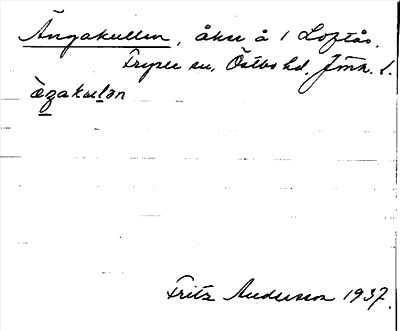 Ängakullen, åker å 1 Loftås.
Fryele sn, Östbo hd. Jönk. l.
ängakulən
Fritz Andersson 1937.